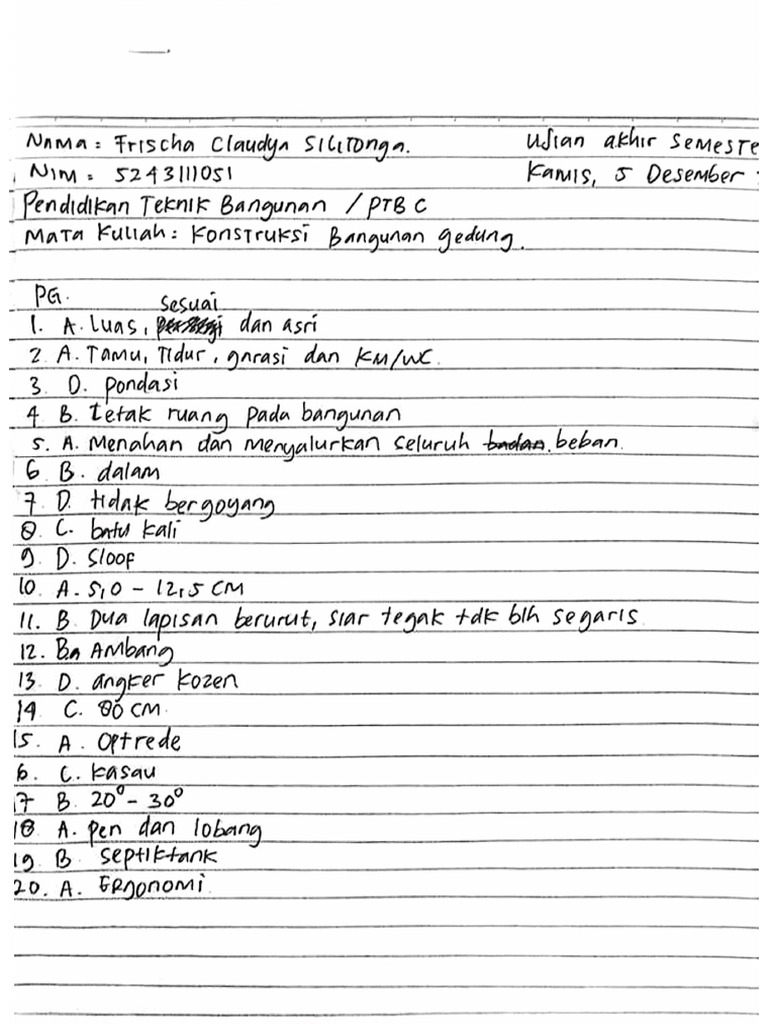 Nama : Frischa Claudya Silitonga.
Ujian akhir Semeste
NIM : 5243111051
Kamis, 5 Desember
Pendidikan Teknik Bangunan / PTB C
Mata Kuliah : Konstruksi Bangunan gedung.
PG.
sesuai
1. A. Luas, dan asri
2 A. Tamu, Tidur, garasi dan KM/WC.
3. D. pondasi
4 B. tetak ruang pada bangunan
5. A. Menahan dan menyalurkan seluruh badan. beban.
6 B. dalam
7 D. tidak bergoyang
8. C. batu kali
9. D. Sloof
10. A. 5,0 - 12,5 CM
11. B. Dua lapisan berurut, siar tegak tdk blh segaris
12. B Ambang
13. D. angker kozen
14 C. 80 CM.
15. A. Optrede
6. C. Kasau
17 B. 20° - 30°
18 A. pen dan lobang
19 B. septiktank
20. A. Ergonomi.